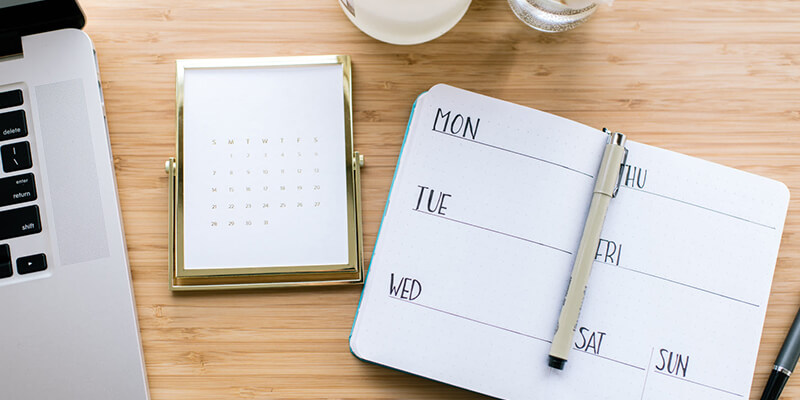 delete
enter
return
shift
S M T W T F S
1 2 3 4 5 6
7 8 9 10 11 12 13
14 15 16 17 18 19 20
21 22 23 24 25 26 27
28 29 30 31
MON
TUE
WED
THU
FRI
SAT
SUN